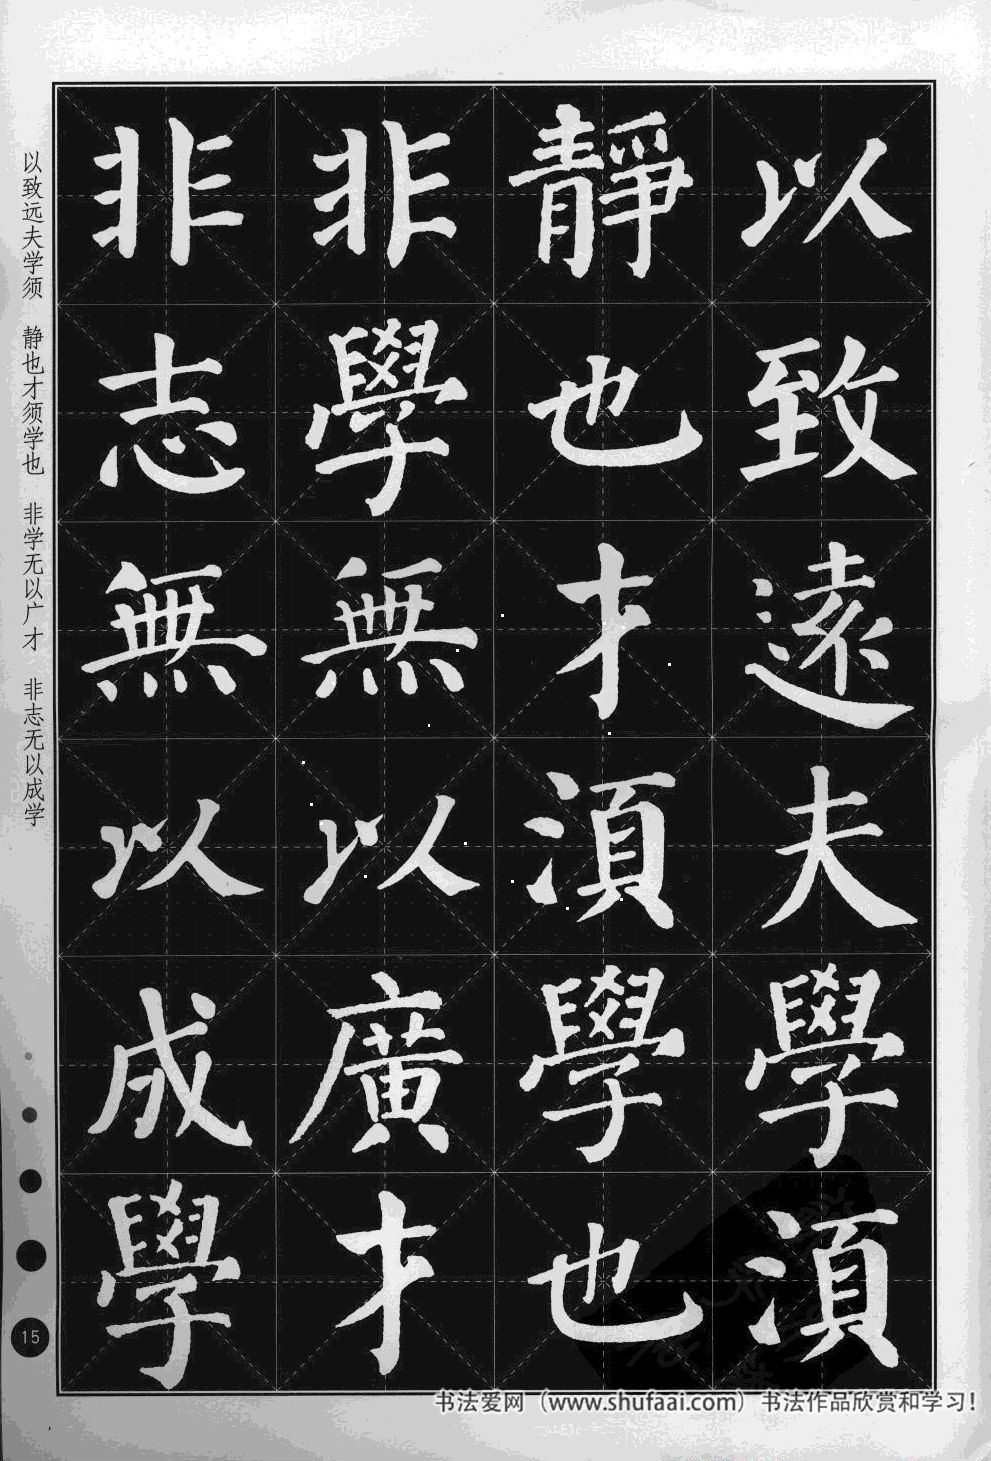 以致遠夫學湏
靜也才湏學也
非學無以廣才
非志無以成學
以致远夫学须 静也才须学也 非学无以广才 非志无以成学
15
书法爱网（www.shufaai.com）书法作品欣赏和学习！